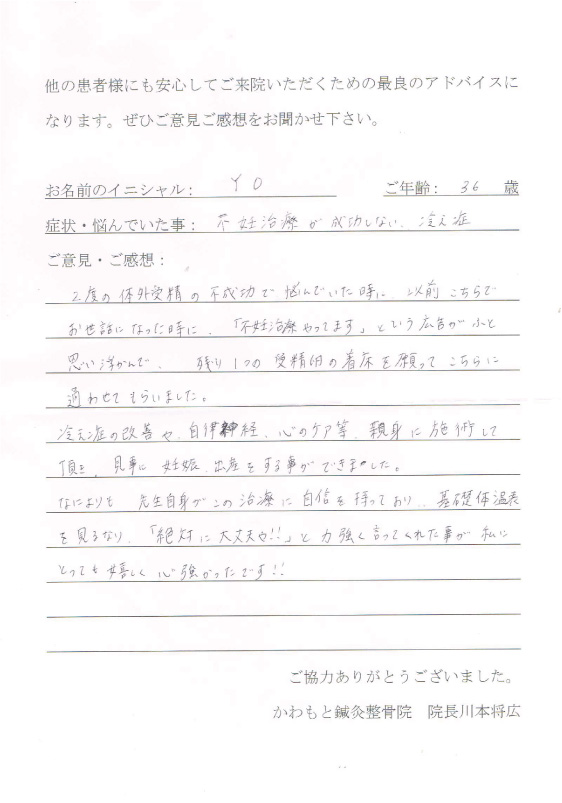 他の患者様にも安心してご来院いただくための最良のアドバイスに
なります。ぜひご意見ご感想をお聞かせ下さい。
お名前のイニシャル： Y O ご年齢： 36 歳
症状・悩んでいた事： 不妊治療が成功しない、冷え症
ご意見・ご感想：
2度の体外受精の不成功で悩んでいた時に、以前こちらで
お世話になった時に、「不妊治療やってます」という広告がふと
思い浮かんで、 残り1つの受精卵の着床を願ってこちらに
通わせてもらいました。
冷え症の改善や、自律神経、心のケア等、親身に施術して
頂き、見事に妊娠、出産をする事ができました。
なによりも 先生自身がこの治療に自信を持っており、基礎体温表
を見るなり、「絶対に大丈夫や!!」と力強く言ってくれた事が私に
とっても嬉しく心強かったです!!
ご協力ありがとうございました。
かわもと鍼灸整骨院 院長川本将広